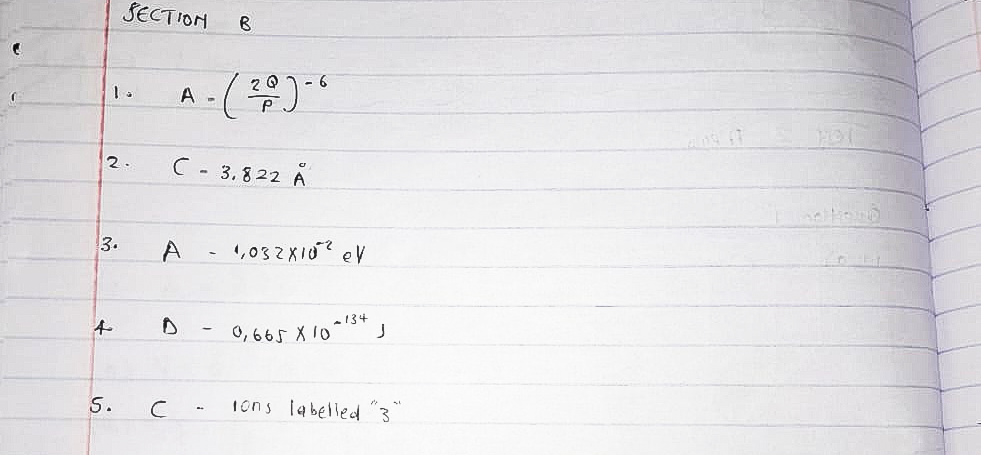 SECTION B
1. A - (2Q/P)^-6
2. C - 3.822 Å
3. A - 1,032X10^-2 eV
4. D - 0,665 X 10^-134 J
5. C - Ions labelled "3"